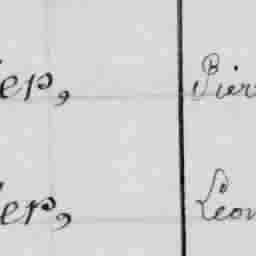 ier, Pier
ier, Leon